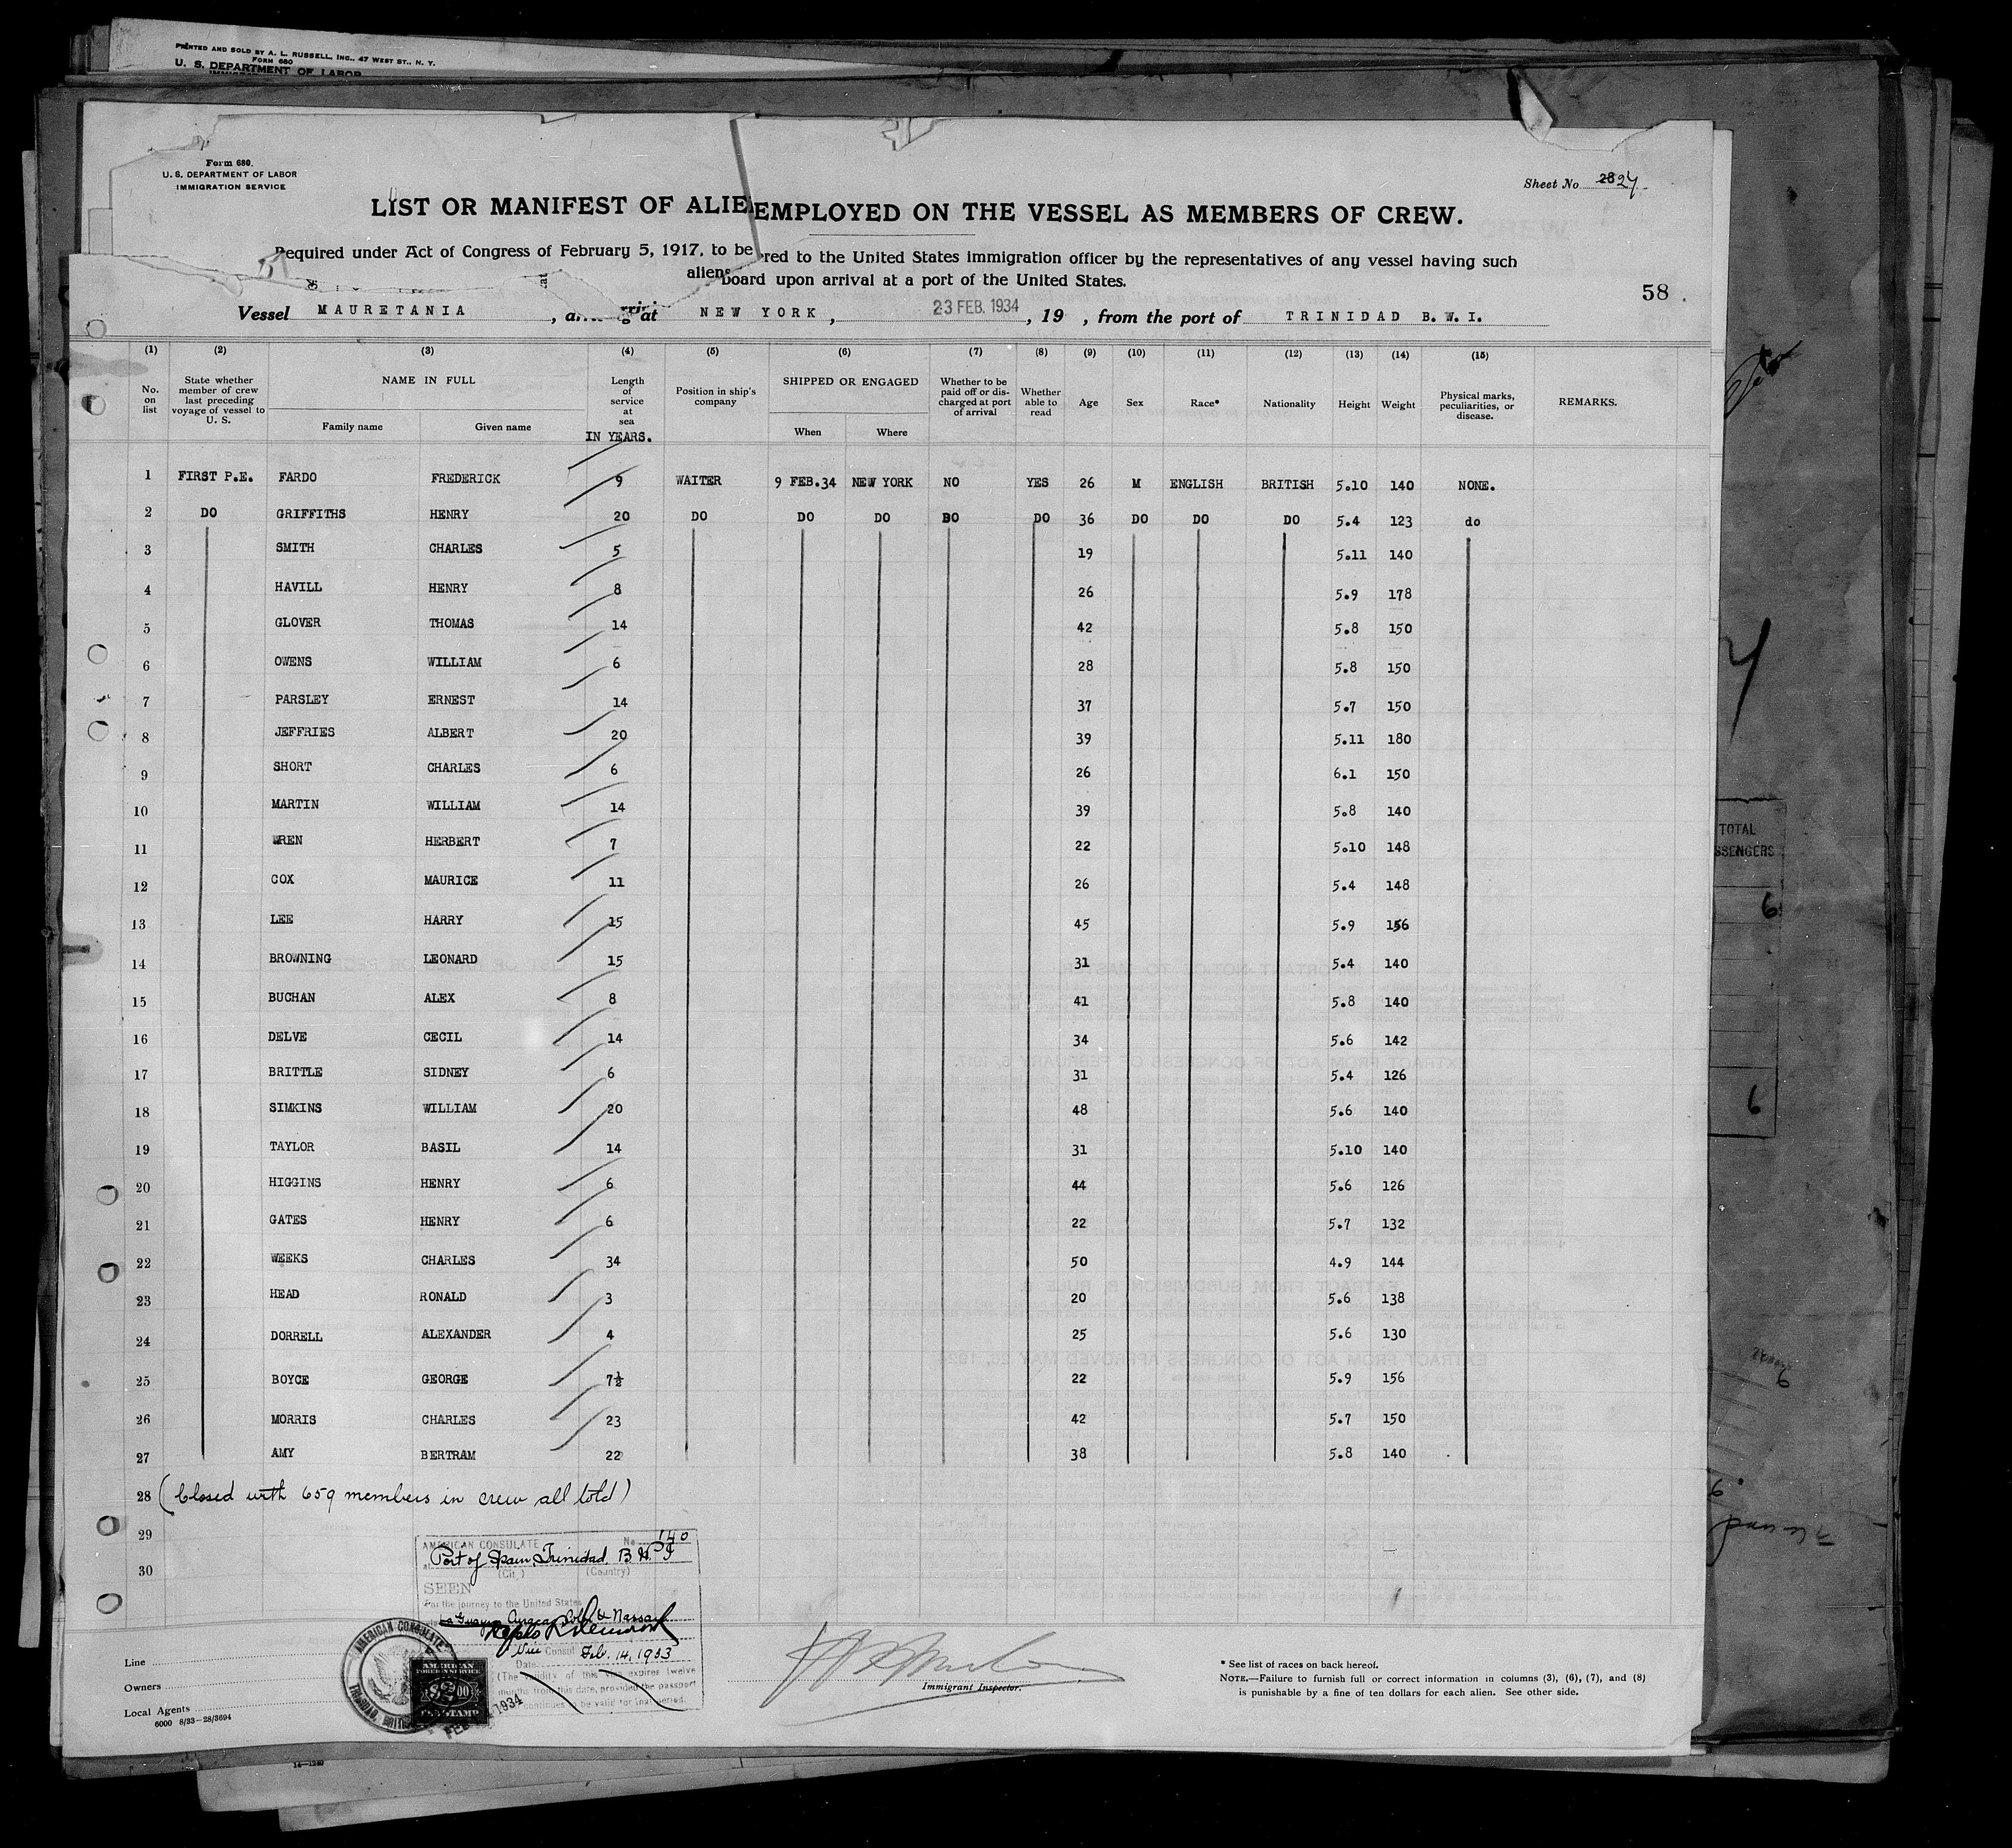 PRINTED AND SOLD BY A. L. RUSSELL, INC., 47 WEST ST., N. Y.
FORM 680
U. S. DEPARTMENT OF LABOR
Form 680.
U. S. DEPARTMENT OF LABOR
IMMIGRATION SERVICE
Sheet No. 28 27
LIST OR MANIFEST OF ALIE EMPLOYED ON THE VESSEL AS MEMBERS OF CREW.
Required under Act of Congress of February 5, 1917, to be red to the United States immigration officer by the representatives of any vessel having such
aliens board upon arrival at a port of the United States.
58
Vessel MAURETANIA, at NEW YORK, 23 FEB. 1934, 19 , from the port of TRINIDAD B.W.I.
(1) (2) (3) (4) (5) (6) (7) (8) (9) (10) (11) (12) (13) (14) (15)
No. on list State whether member of crew last preceding voyage of vessel to U. S. NAME IN FULL Family name Given name Length of service at sea IN YEARS. Position in ship's company SHIPPED OR ENGAGED When Where Whether to be paid off or discharged at port of arrival Whether able to read Age Sex Race* Nationality Height Weight Physical marks, peculiarities, or disease. REMARKS.
1 FIRST P.E. FARDO FREDERICK 9 WAITER 9 FEB.34 NEW YORK NO YES 26 M ENGLISH BRITISH 5.10 140 NONE.
2 DO GRIFFITHS HENRY 20 DO DO DO DO DO 36 DO DO DO 5.4 123 do
3 SMITH CHARLES 5 19 5.11 140
4 HAVILL HENRY 8 26 5.9 178
5 GLOVER THOMAS 14 42 5.8 150
6 OWENS WILLIAM 6 28 5.8 150
7 PARSLEY ERNEST 14 37 5.7 150
8 JEFFRIES ALBERT 20 39 5.11 180
9 SHORT CHARLES 6 26 6.1 150
10 MARTIN WILLIAM 14 39 5.8 140
11 WREN HERBERT 7 22 5.10 148
12 COX MAURICE 11 26 5.4 148
13 LEE HARRY 15 45 5.9 156
14 BROWNING LEONARD 15 31 5.4 140
15 BUCHAN ALEX 8 41 5.8 140
16 DELVE CECIL 14 34 5.6 142
17 BRITTLE SIDNEY 6 31 5.4 126
18 SIMKINS WILLIAM 20 48 5.6 140
19 TAYLOR BASIL 14 31 5.10 140
20 HIGGINS HENRY 6 44 5.6 126
21 GATES HENRY 6 22 5.7 132
22 WEEKS CHARLES 34 50 4.9 144
23 HEAD RONALD 3 20 5.6 138
24 DORRELL ALEXANDER 4 25 5.6 130
25 BOYCE GEORGE 7½ 22 5.9 156
26 MORRIS CHARLES 23 42 5.7 150
27 AMY BERTRAM 22 38 5.8 140
28 (Closed with 659 members in crew all told)
29
30
AMERICAN CONSULATE No. 140
Port of Spain, Trinidad, B.W.I
(Country)
SEEN
For the journey to the United States
La Guayra Curacao Colon & Nassau
Vice Consul
Date Feb. 14, 1933
(The validity of this visa expires twelve
months from this date, provided the passport
continues to be valid for that period.
AMERICAN CONSULATE
AMERICAN
FOREIGN SERVICE
1934
Line
Owners
Local Agents
6000 8/33—28/3694
Immigrant Inspector.
* See list of races on back hereof.
NOTE.—Failure to furnish full or correct information in columns (3), (6), (7), and (8)
is punishable by a fine of ten dollars for each alien. See other side.
TOTAL
SSENGERS
6
6